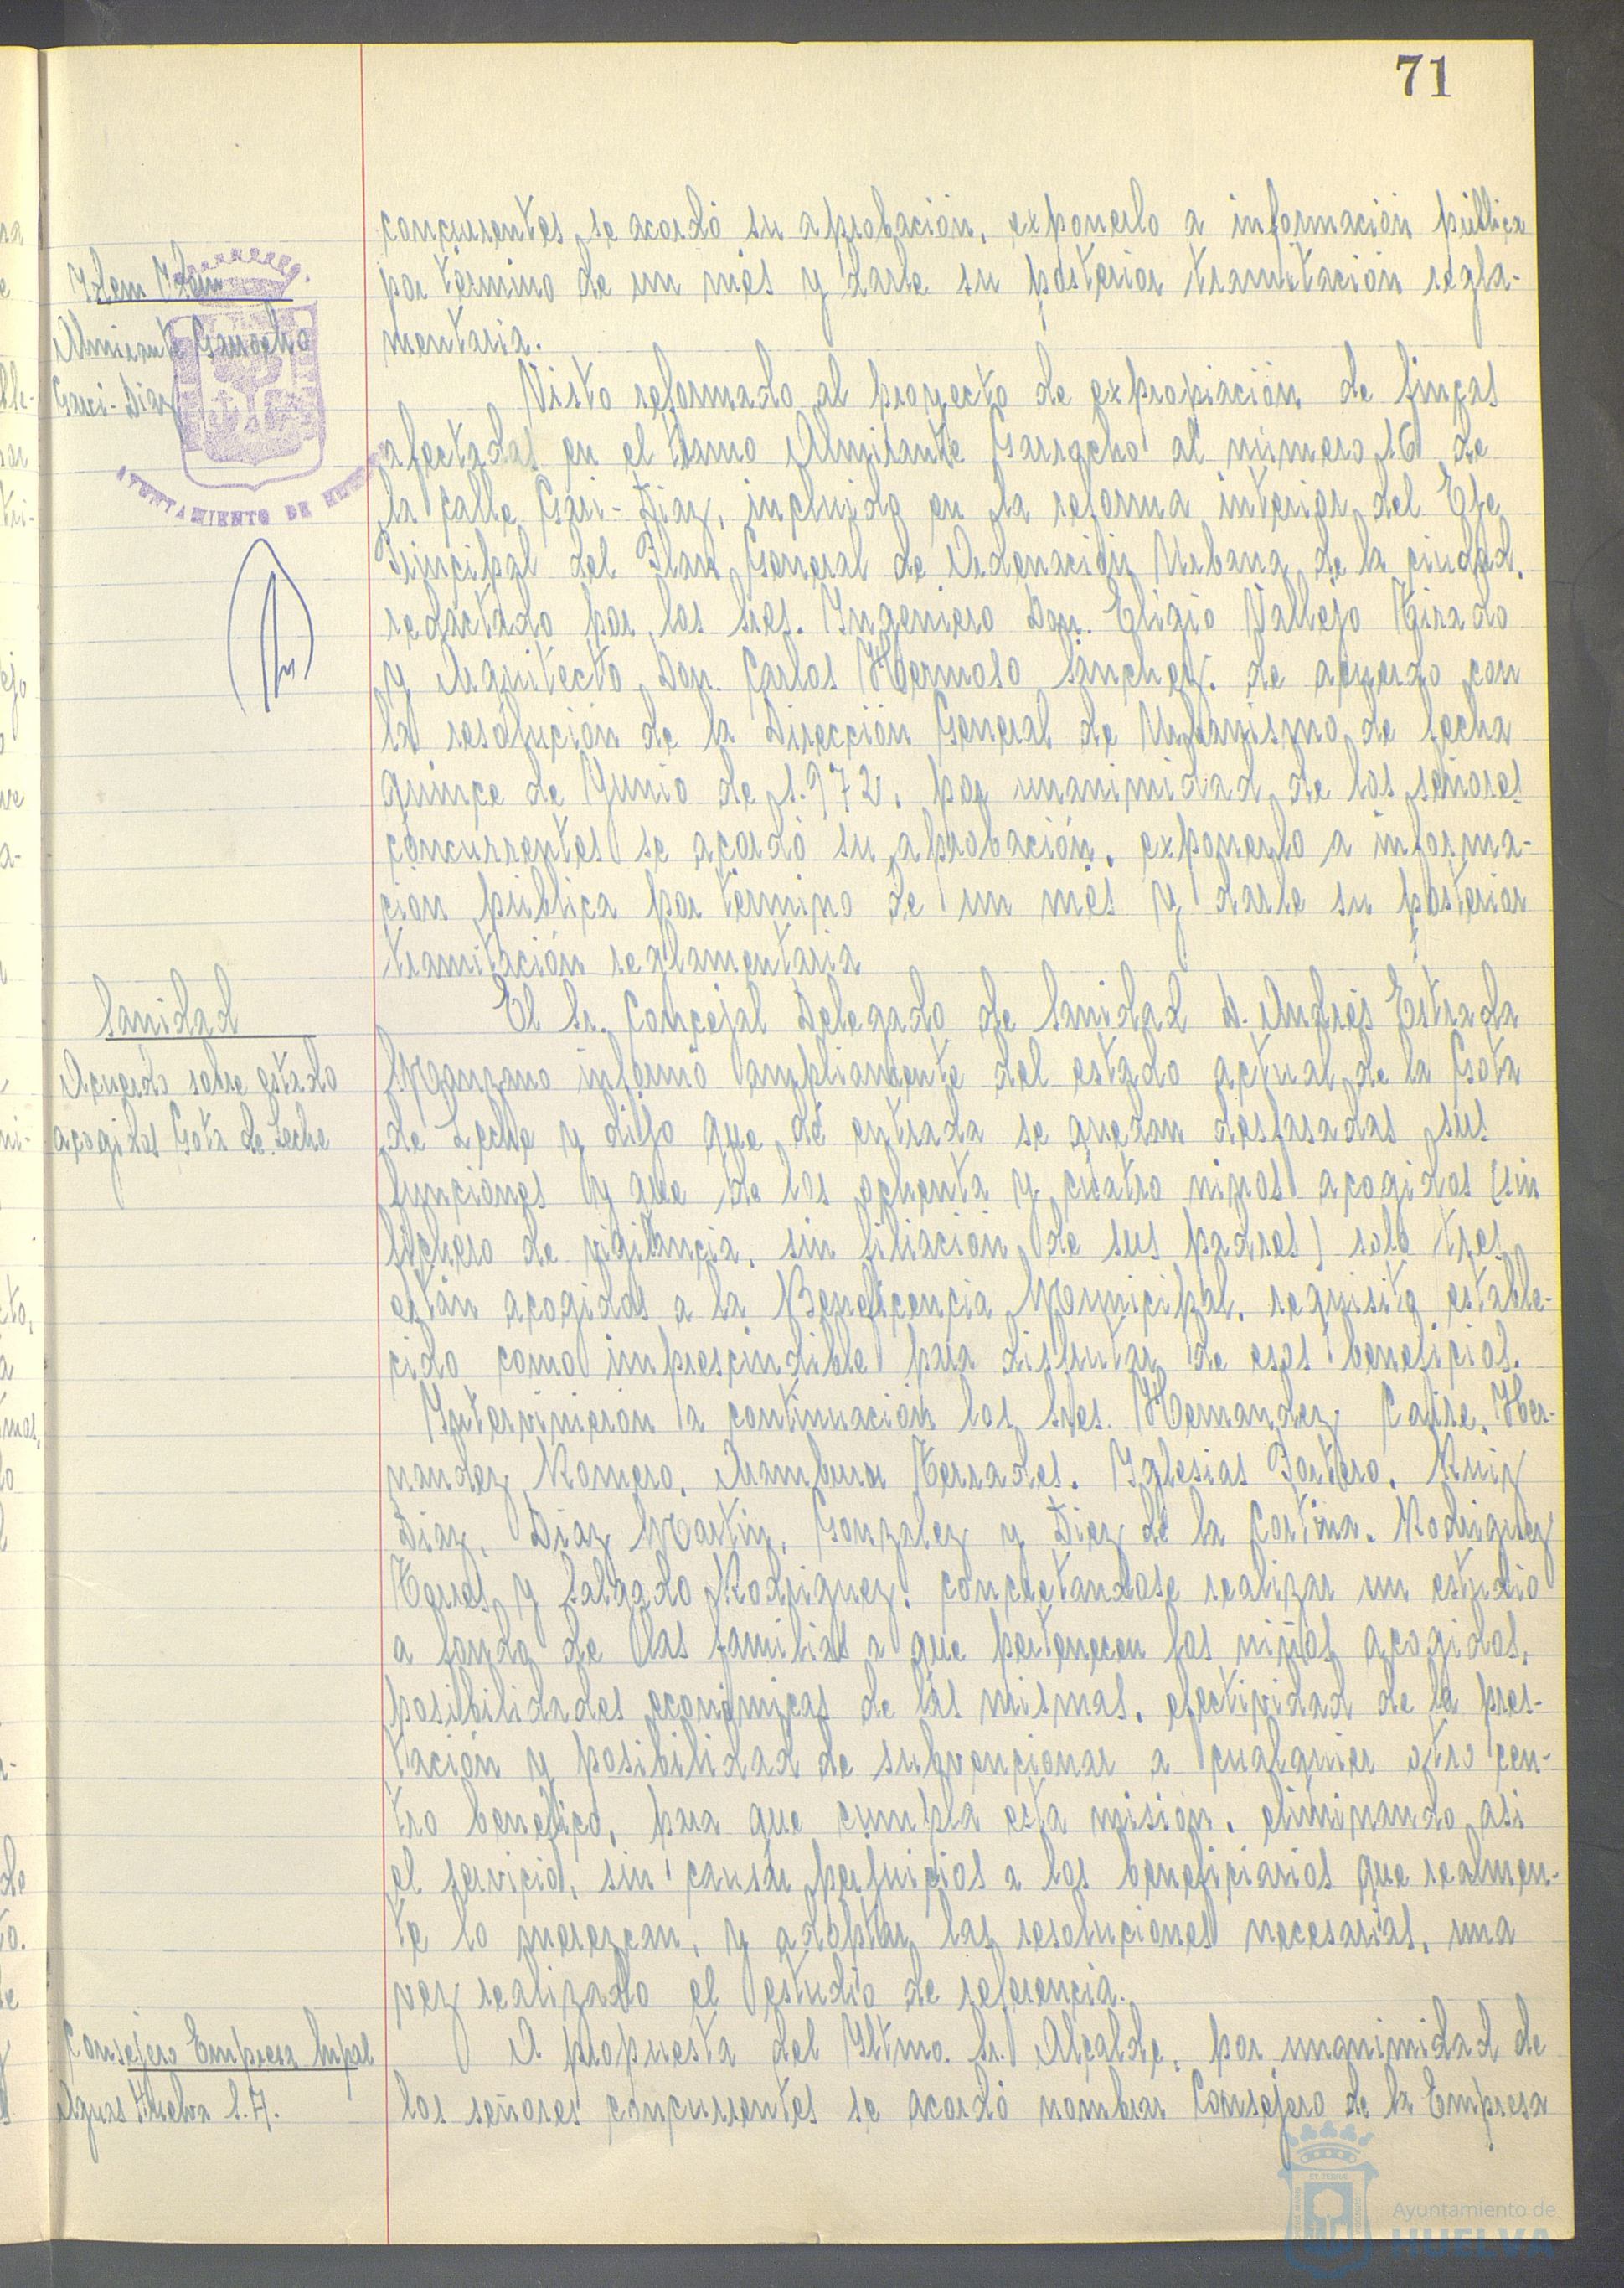 71
concurrentes, se acordó su aprobación, exponerlo a información pública
Idem Idem
por término de un més y darle su posterior tramitación regla-
Almirante Garrocho
mentaria.
Garci-Diaz
Visto reformado al proyecto de expropiación de fincas
afectadas en el tramo Almirante Garrocho al número 16 de
la calle Garci-Diaz, incluido en la reforma interior del Eje
AYUNTAMIENTO DE HUELVA
Principal del Plan General de Ordenación Urbana de la ciudad,
redactado por los Sres. Ingeniero Don. Eligio Vallejo Tirado
y Arquitecto Don. Carlos Hermoso Sanchez, de acuerdo con
la resolución de la Dirección General de Urbanismo de fecha
quince de Junio de 1.972, por unanimidad de los señores
concurrentes se acordó su aprobación, exponerlo a informa-
ción pública por término de un més y darle su posterior
tramitación reglamentaria
Sanidad
El Sr. Concejal Delegado de Sanidad D. Andrés Estrada
Acuerdo sobre estado
Manzano informó ampliamente del estado actual de la Gota
acogidos Gota de Leche
de Leche y dijo que de entrada se quedan desfasadas sus
funciones y que de los ochenta y cuatro niños acogidos (sin
fichero de vigilancia, sin filiación de sus padres) solo tres
están acogidos a la Beneficencia Municipal, requisito estable-
cido como imprescindible para disfrutar de esos beneficios.
Intervinieron a continuación los Sres. Hernandez Calire, Her-
nandez Romero, Aramburu Terrades, Iglesias Portero, Ruiz
Diaz, Diaz Martin, Gonzalez y Diez de la Cortina, Rodriguez
Torres y Salgado Rodriguez, concretandose realizar un estudio
a fondo de las familias a que pertenecen los niños acogidos,
posibilidades económicas de las mismas, efectividad de la pres-
tación y posibilidad de subvencionar a cualquier otro cen-
tro benefico, para que cumpla esta misión, eliminando asi
el servicio, sin causar perjuicios a los beneficiarios que realmen-
te lo merezcan, y adoptar las resoluciones necesarias, una
vez realizado el estudio de referencia.
Consejero Empresa Mpal
A propuesta del Iltmo. Sr. Alcalde, por unanimidad de
Aguas Huelva S.A.
los señores concurrentes se acordó nombrar Consejero de la Empresa
Ayuntamiento de
HUELVA